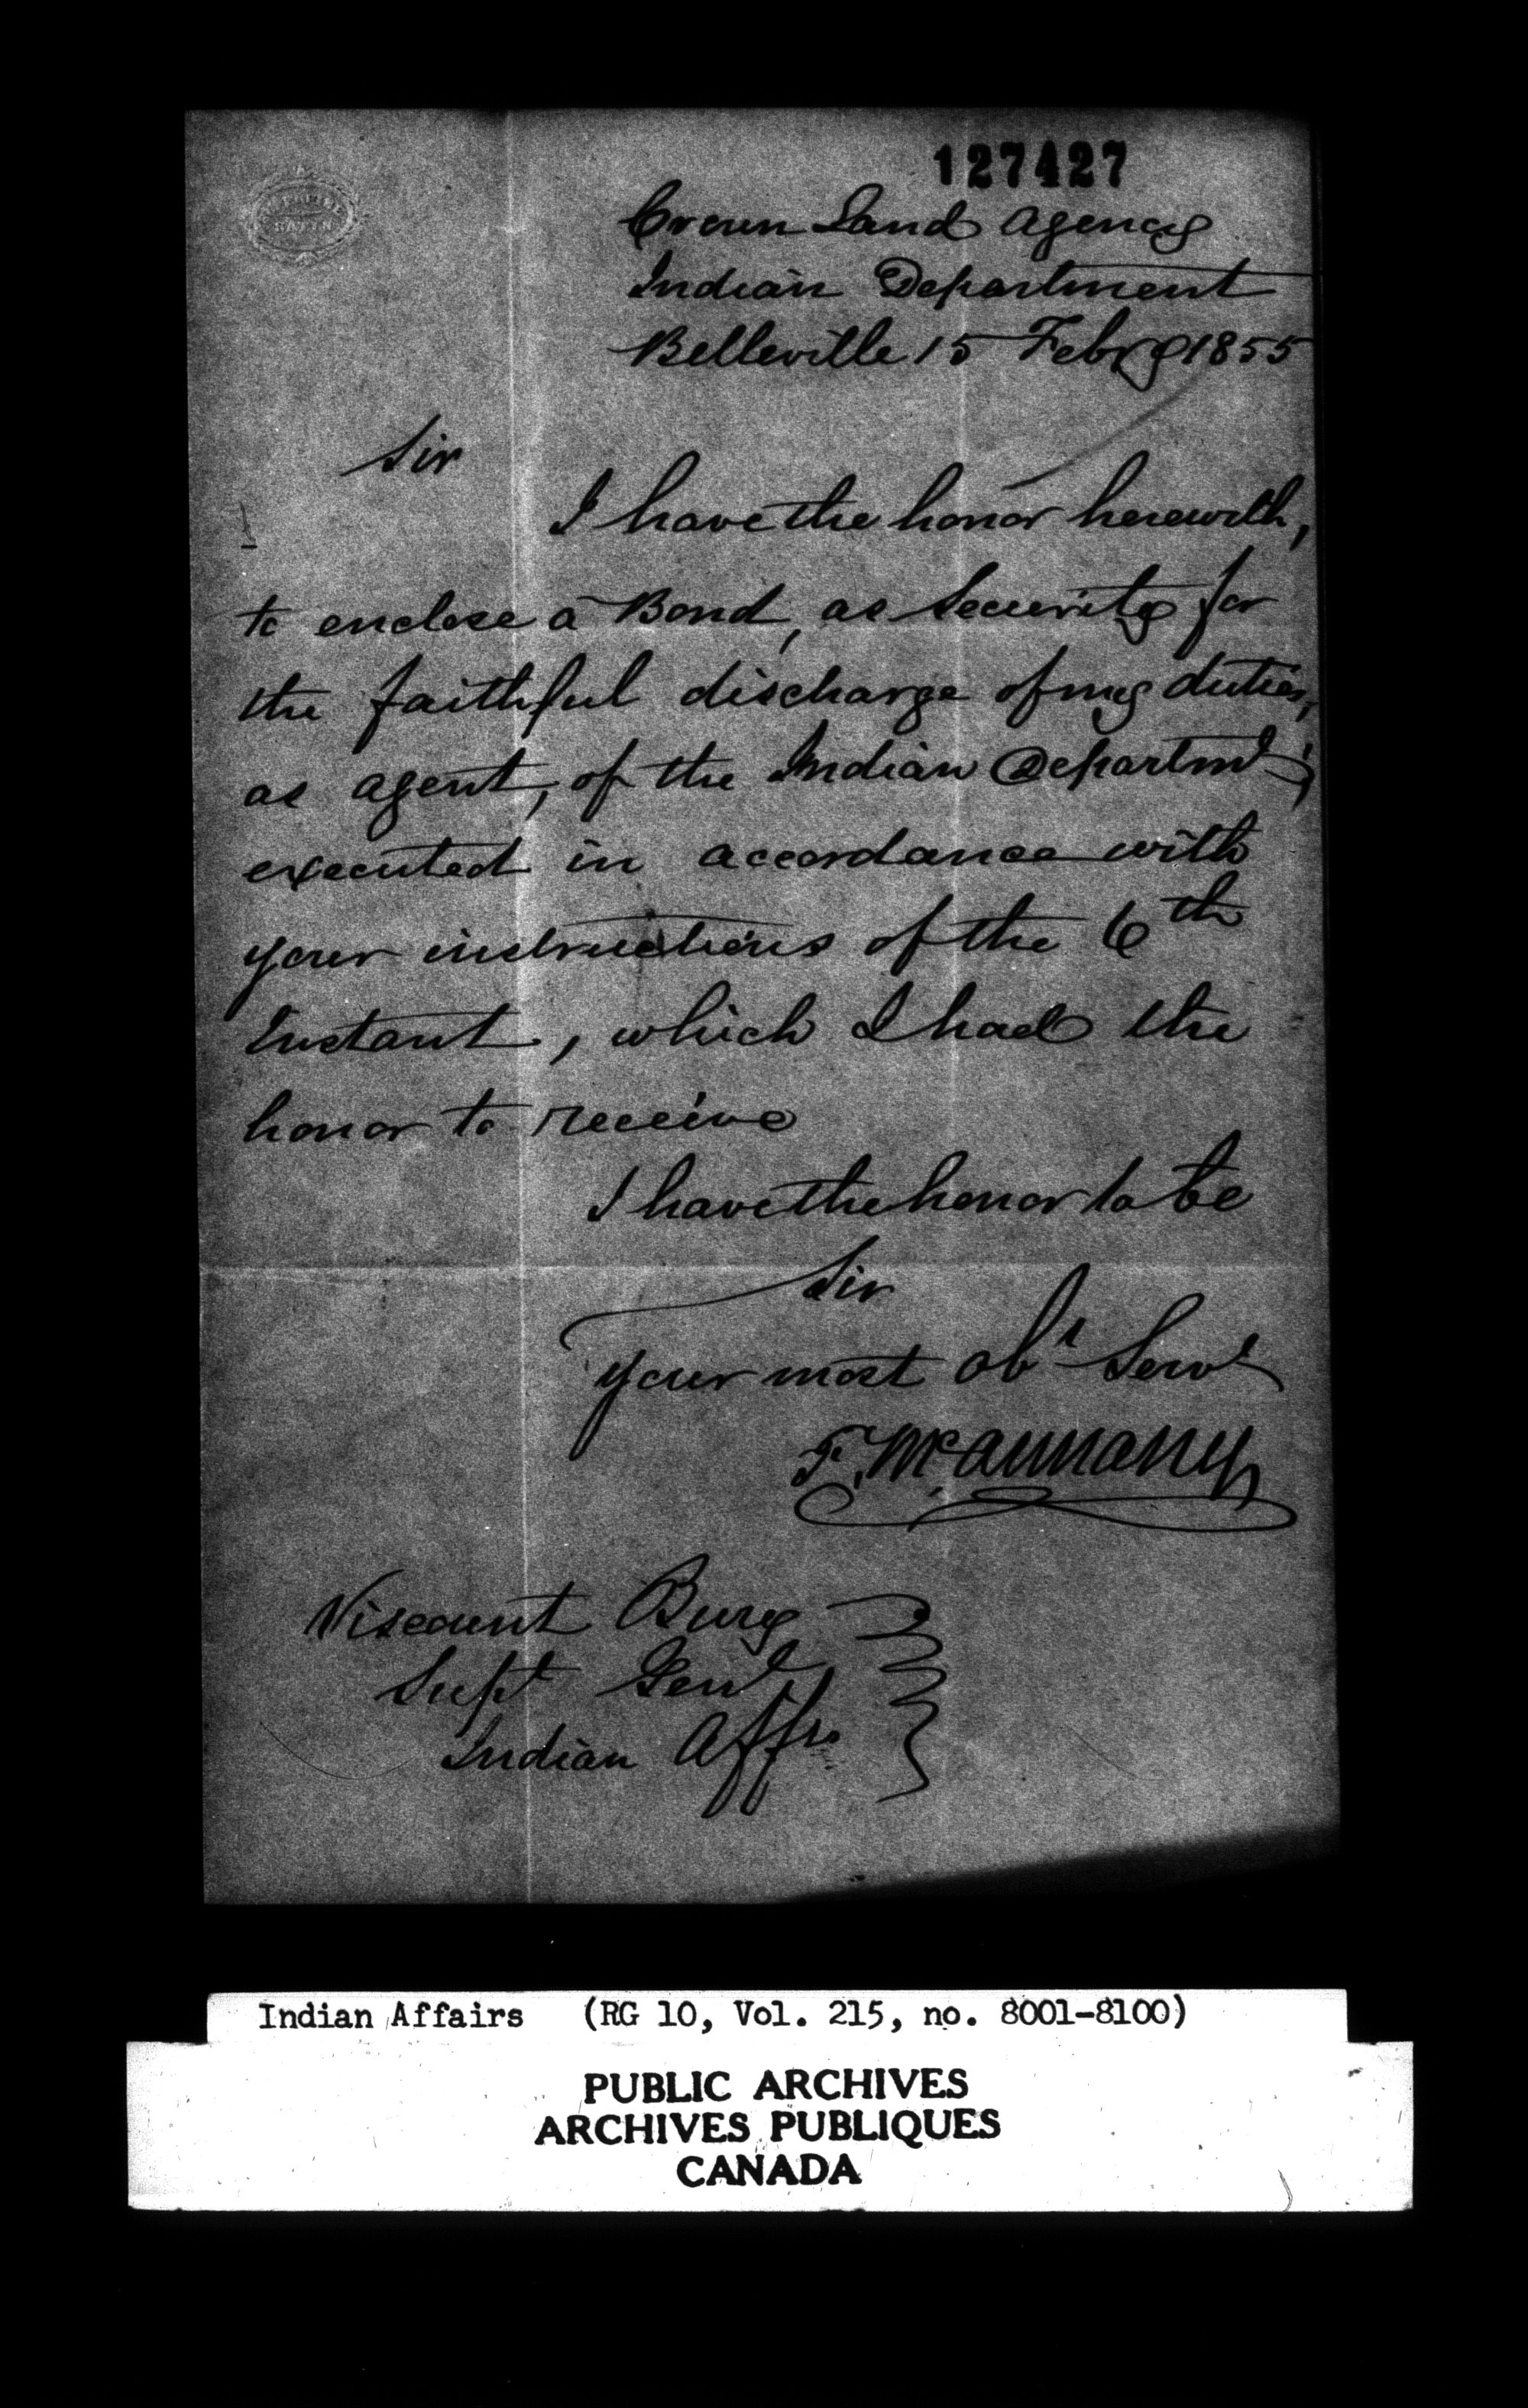 127427
Crown Land Agency
Indian Department
Belleville 15 Febry 1855
Sir
I have the honor herewith,
to enclose a Bond, as Security for
the faithful discharge of my duties,
as agent, of the Indian Departmt;
executed in accordance with
your instructions of the 6th
Instant, which I had the
honor to receive
I have the honor to be
Sir
your most obt Servt
F. McAnnany
Viscount Bury
Supt Genl
Indian Affrs
Indian Affairs (RG 10, Vol. 215, no. 8001-8100)
PUBLIC ARCHIVES
ARCHIVES PUBLIQUES
CANADA